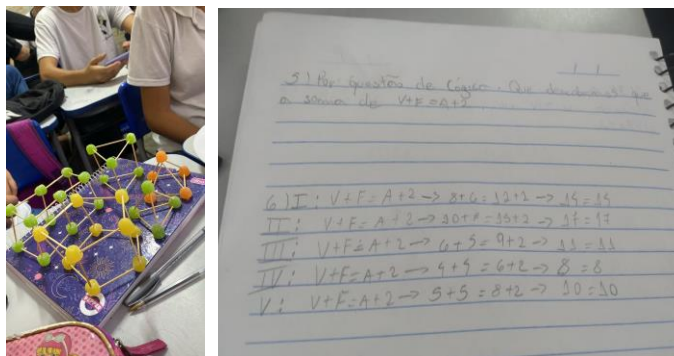 5) Por questão de lógica. Que descobrimos que
a soma de V+F=A+2
6) I: V+F=A+2 → 8+6=12+2 → 14=14
II: V+F=A+2 → 10+7=15+2 → 17=17
III: V+F=A+2 → 6+5=9+2 → 11=11
IV: V+F=A+2 → 4+4=6+2 → 8=8
V: V+F=A+2 → 5+5=8+2 → 10=10